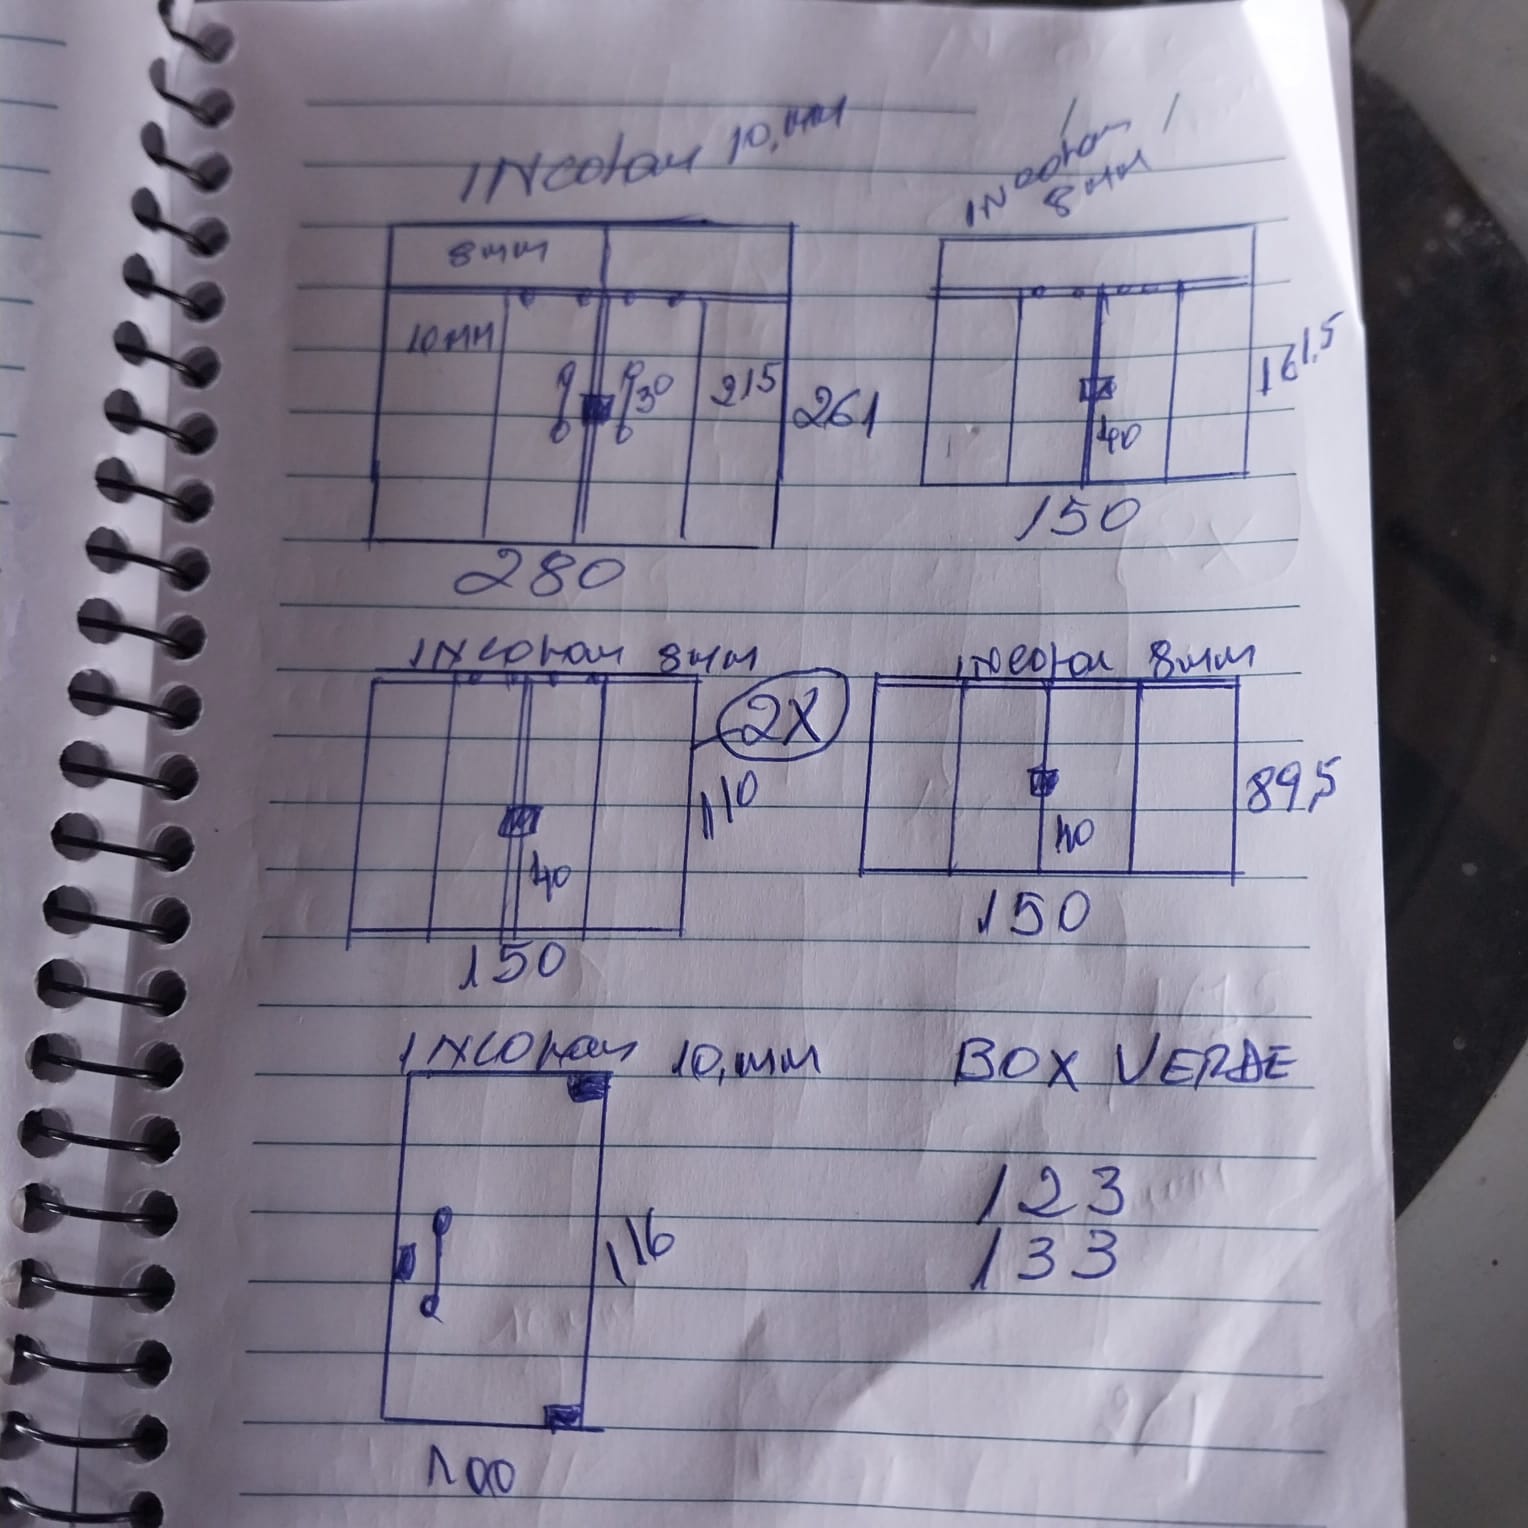 INcolor 10,mm
8mm
10mm
30
215
261
280
INcolor
8mm
161,5
40
150
INcolor 8mm
2X
110
40
150
INcolor 8mm
89,5
40
150
INcolor 10,mm
116
100
BOX VERDE
123
133